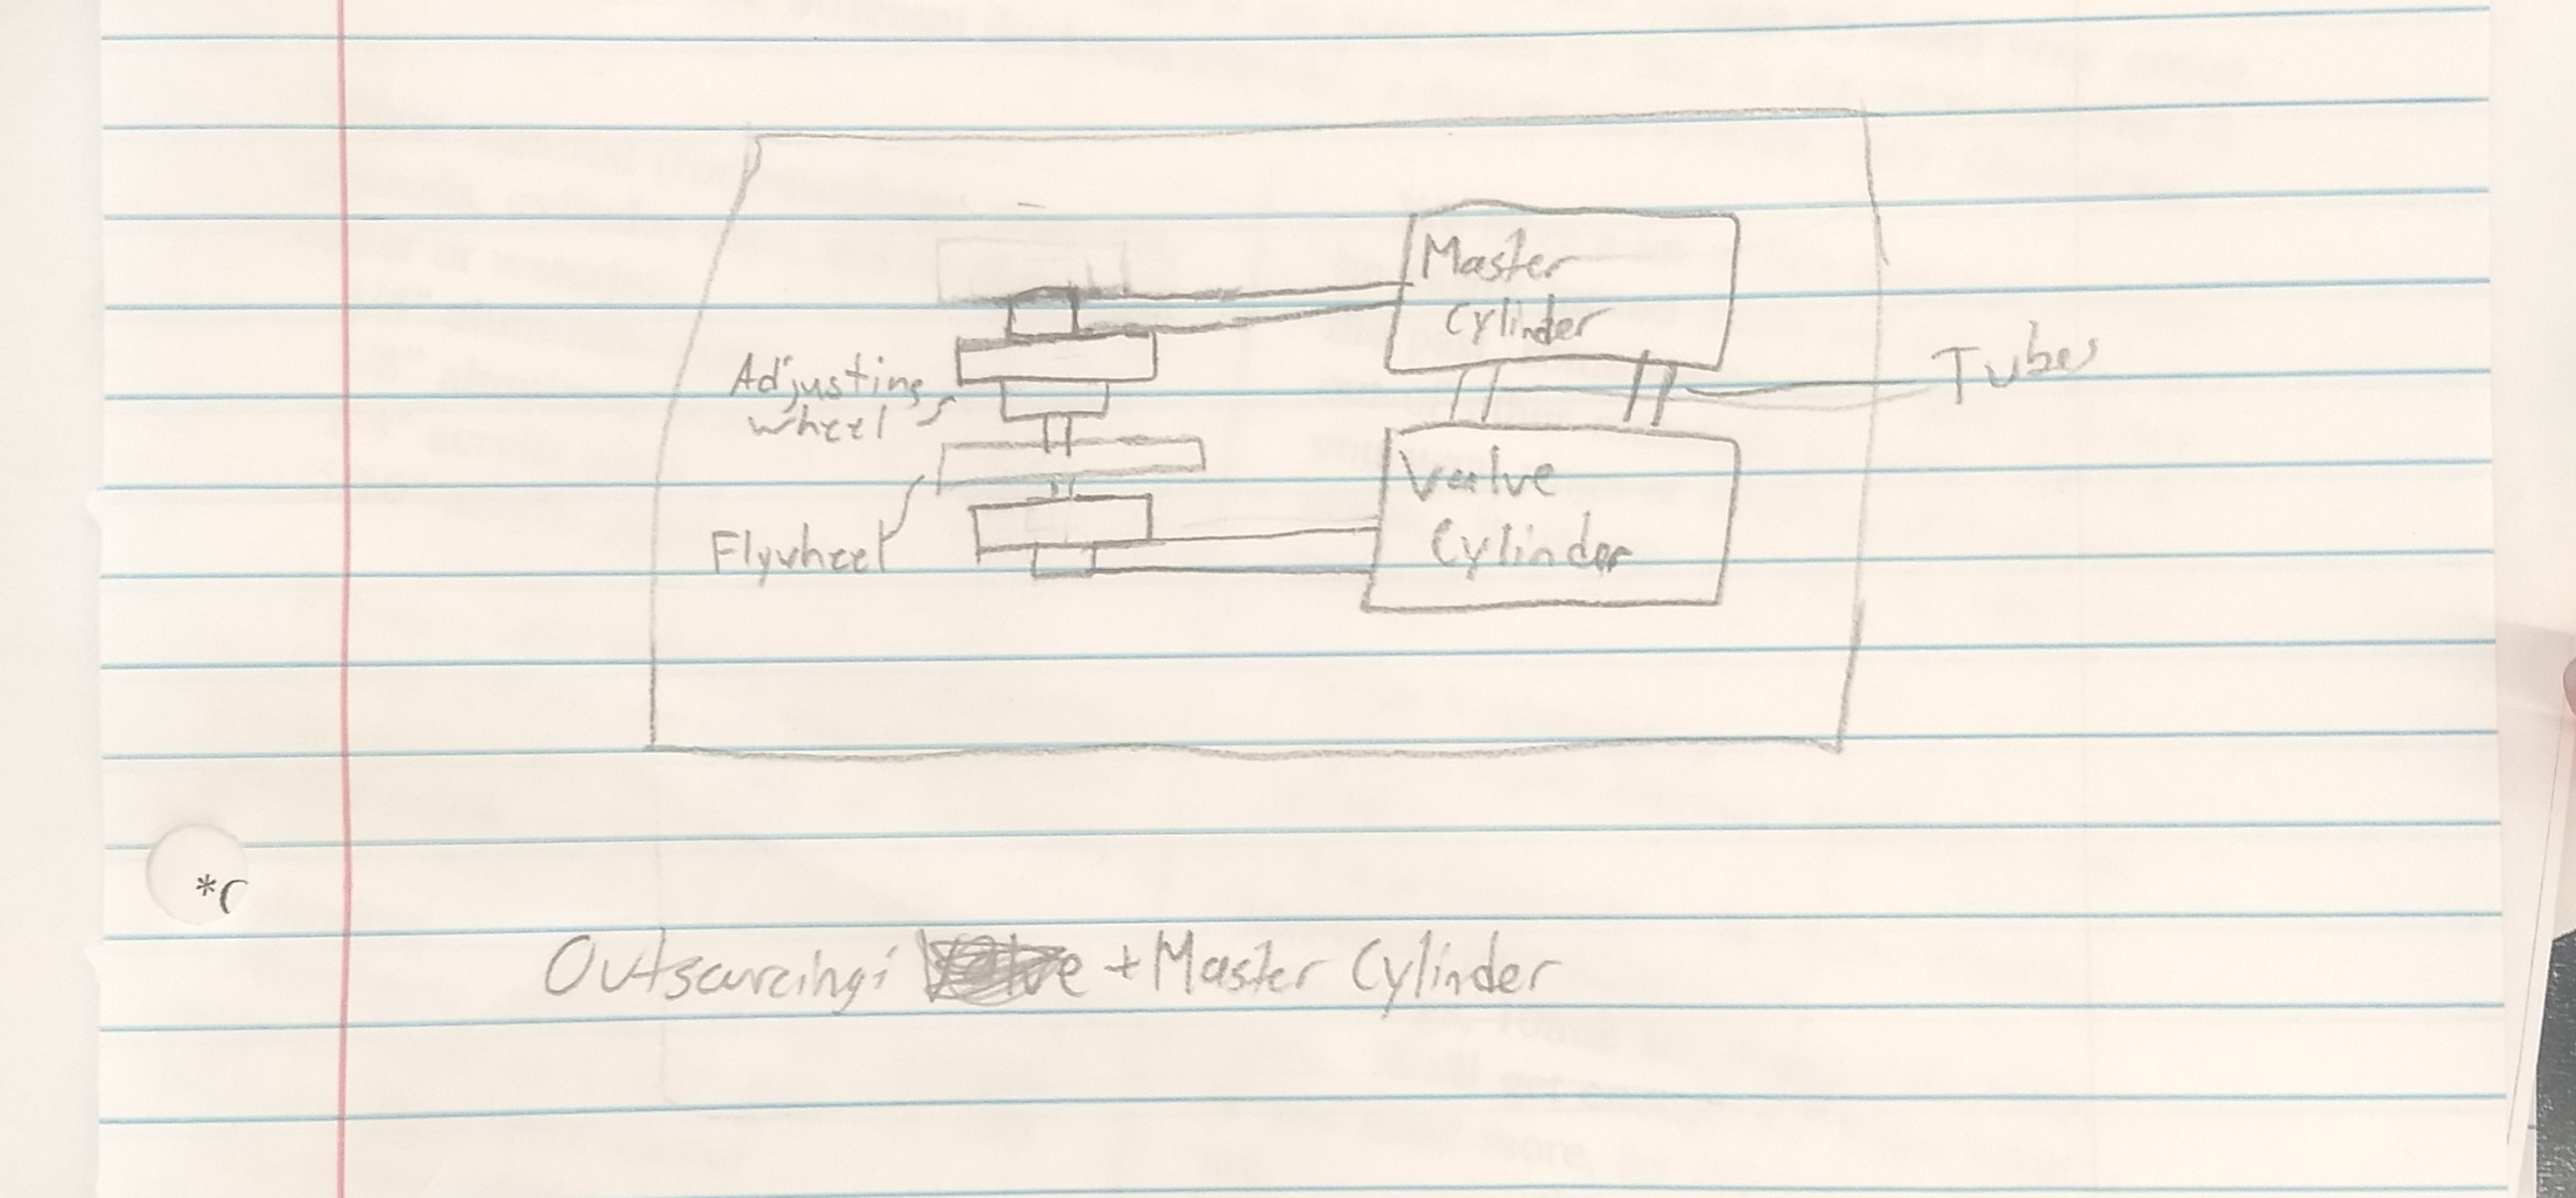 Master
Cylinder
Adjusting
wheel
Tubes
Valve
Cylinder
Flywheel
*(
Outsourcing: + Master Cylinder